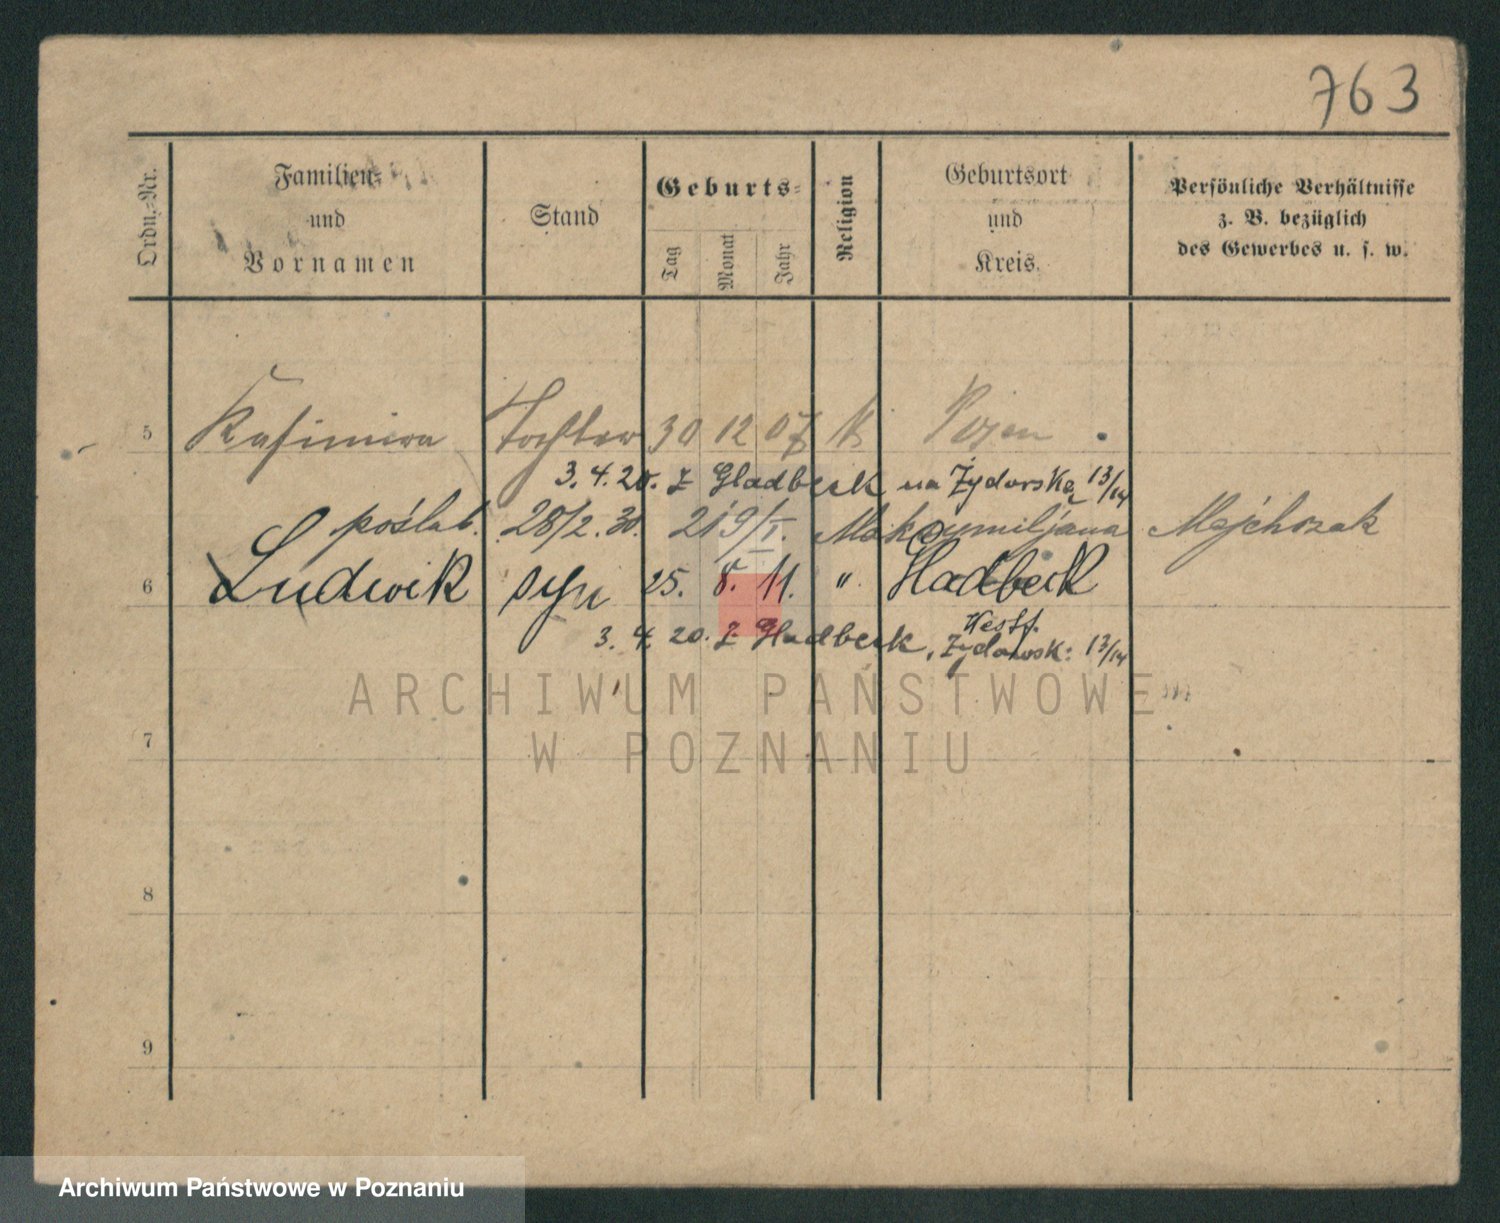 763
Ordn.-Nr.
Familien-
und
Vornamen
Stand
Geburts-
Tag
Monat
Jahr
Religion
Geburtsort
und
Kreis.
Persönliche Verhältnisse
z. B. bezüglich
des Gewerbes u. s. w.
5 Kasimira Tochter 30 12 07 k. Posen
3. 4. 20. z Gladbeck na Żydowską 13/14
poślub. 28/2. 30. Maksymiljana Majchrzak
6 Ludwik syn 25. 8. 11. " Gladbeck
Westf.
3. 4. 20. z Gladbeck, Żydowsk: 13/14
ARCHIWUM PAŃSTWOWE
W POZNANIU
7
8
9
Archiwum Państwowe w Poznaniu